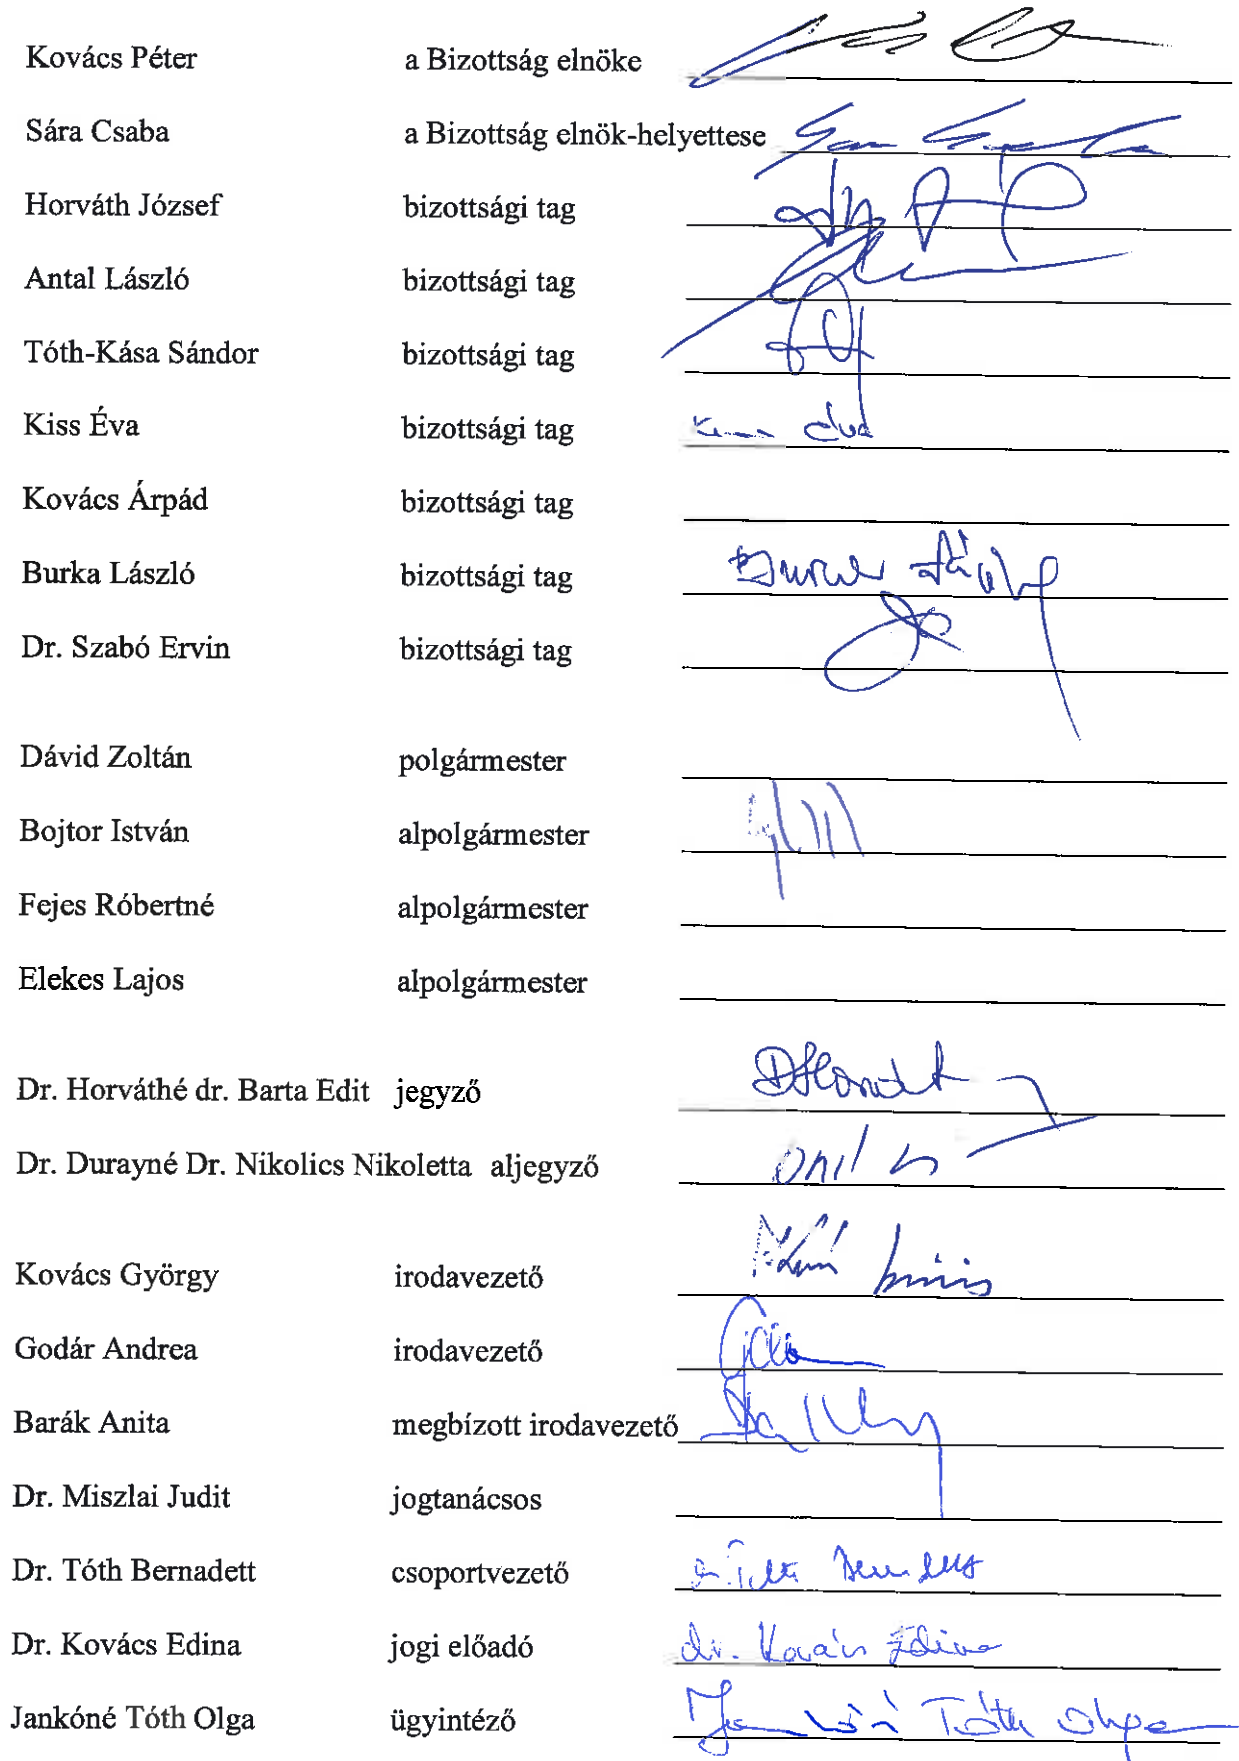 Kovács Péter a Bizottság elnöke
Sára Csaba a Bizottság elnök-helyettese
Horváth József bizottsági tag
Antal László bizottsági tag
Tóth-Kása Sándor bizottsági tag
Kiss Éva bizottsági tag
Kovács Árpád bizottsági tag
Burka László bizottsági tag
Dr. Szabó Ervin bizottsági tag
Dávid Zoltán polgármester
Bojtor István alpolgármester
Fejes Róbertné alpolgármester
Elekes Lajos alpolgármester
Dr. Horváthé dr. Barta Edit jegyző
Dr. Durayné Dr. Nikolics Nikoletta aljegyző
Kovács György irodavezető
Godár Andrea irodavezető
Barák Anita megbízott irodavezető
Dr. Miszlai Judit jogtanácsos
Dr. Tóth Bernadett csoportvezető
Dr. Kovács Edina jogi előadó dr. Kovács Edina
Jankóné Tóth Olga ügyintéző Jankóné Tóth Olga